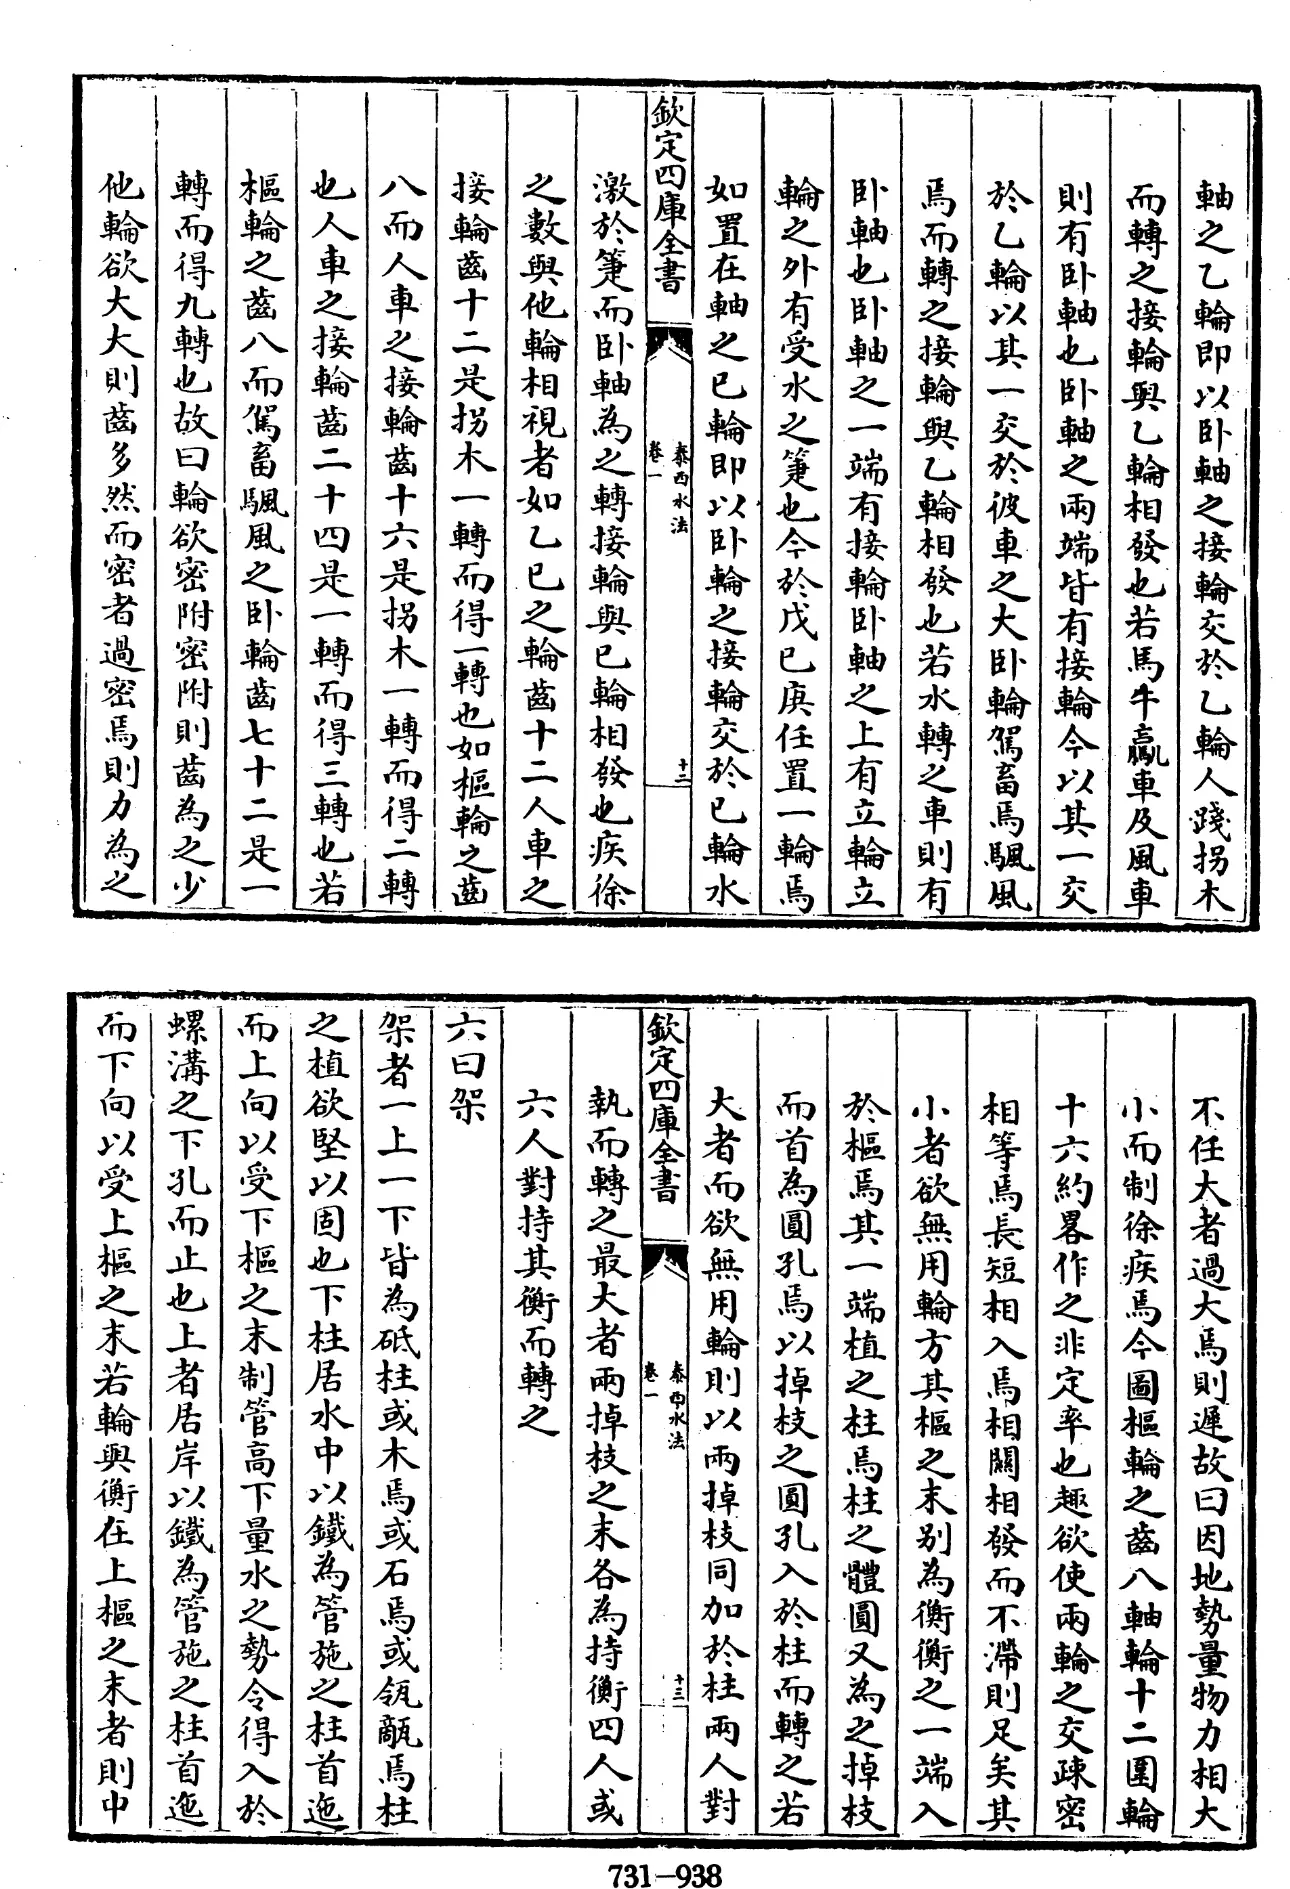 軸之乙輪即以卧軸之接輪交於乙輪人踐拐木
而轉之接輪與乙輪相發也若馬牛驘車及風車
則有卧軸也卧軸之兩端皆有接輪今以其一交
於乙輪以其一交於彼車之大卧輪駕畜焉颿風
焉而轉之接輪與乙輪相發也若水轉之車則有
卧軸也卧軸之一端有接輪卧軸之上有立輪立
輪之外有受水之箑也今於戊己庚任置一輪焉
如置在軸之已輪即以卧輪之接輪交於已輪水
欽定四庫全書
泰西水法
卷一
十二
激於箑而卧軸為之轉接輪與已輪相發也疾徐
之數與他輪相視者如乙已之輪齒十二人車之
接輪齒十二是拐木一轉而得一轉也如樞輪之齒
八而人車之接輪齒十六是拐木一轉而得二轉
也人車之接輪齒二十四是一轉而得三轉也若
樞輪之齒八而駕畜颿風之卧輪齒七十二是一
轉而得九轉也故曰輪欲密附密附則齒為之少
他輪欲大大則齒多然而密者過密焉則力為之
不任大者過大焉則遲故曰因地勢量物力相大
小而制徐疾焉今圖樞輪之齒八軸輪十二圍輪
十六約畧作之非定率也趣欲使兩輪之交疎密
相等焉長短相入焉相關相發而不滯則足矣其
小者欲無用輪方其樞之末别為衡衡之一端入
於樞焉其一端植之柱焉柱之體圓又為之掉枝
而首為圓孔焉以掉枝之圓孔入於柱而轉之若
大者而欲無用輪則以兩掉枝同加於柱兩人對
欽定四庫全書
泰西水法
卷一
十三
執而轉之最大者兩掉枝之末各為持衡四人或
六人對持其衡而轉之
六曰架
架者一上一下皆為砥柱或木焉或石焉或瓴甋焉柱
之植欲堅以固也下柱居水中以鐵為管施之柱首迤
而上向以受下樞之末制管高下量水之勢令得入於
螺溝之下孔而止也上者居岸以鐵為管施之柱首迤
而下向以受上樞之末若輪與衡在上樞之末者則中
731-938